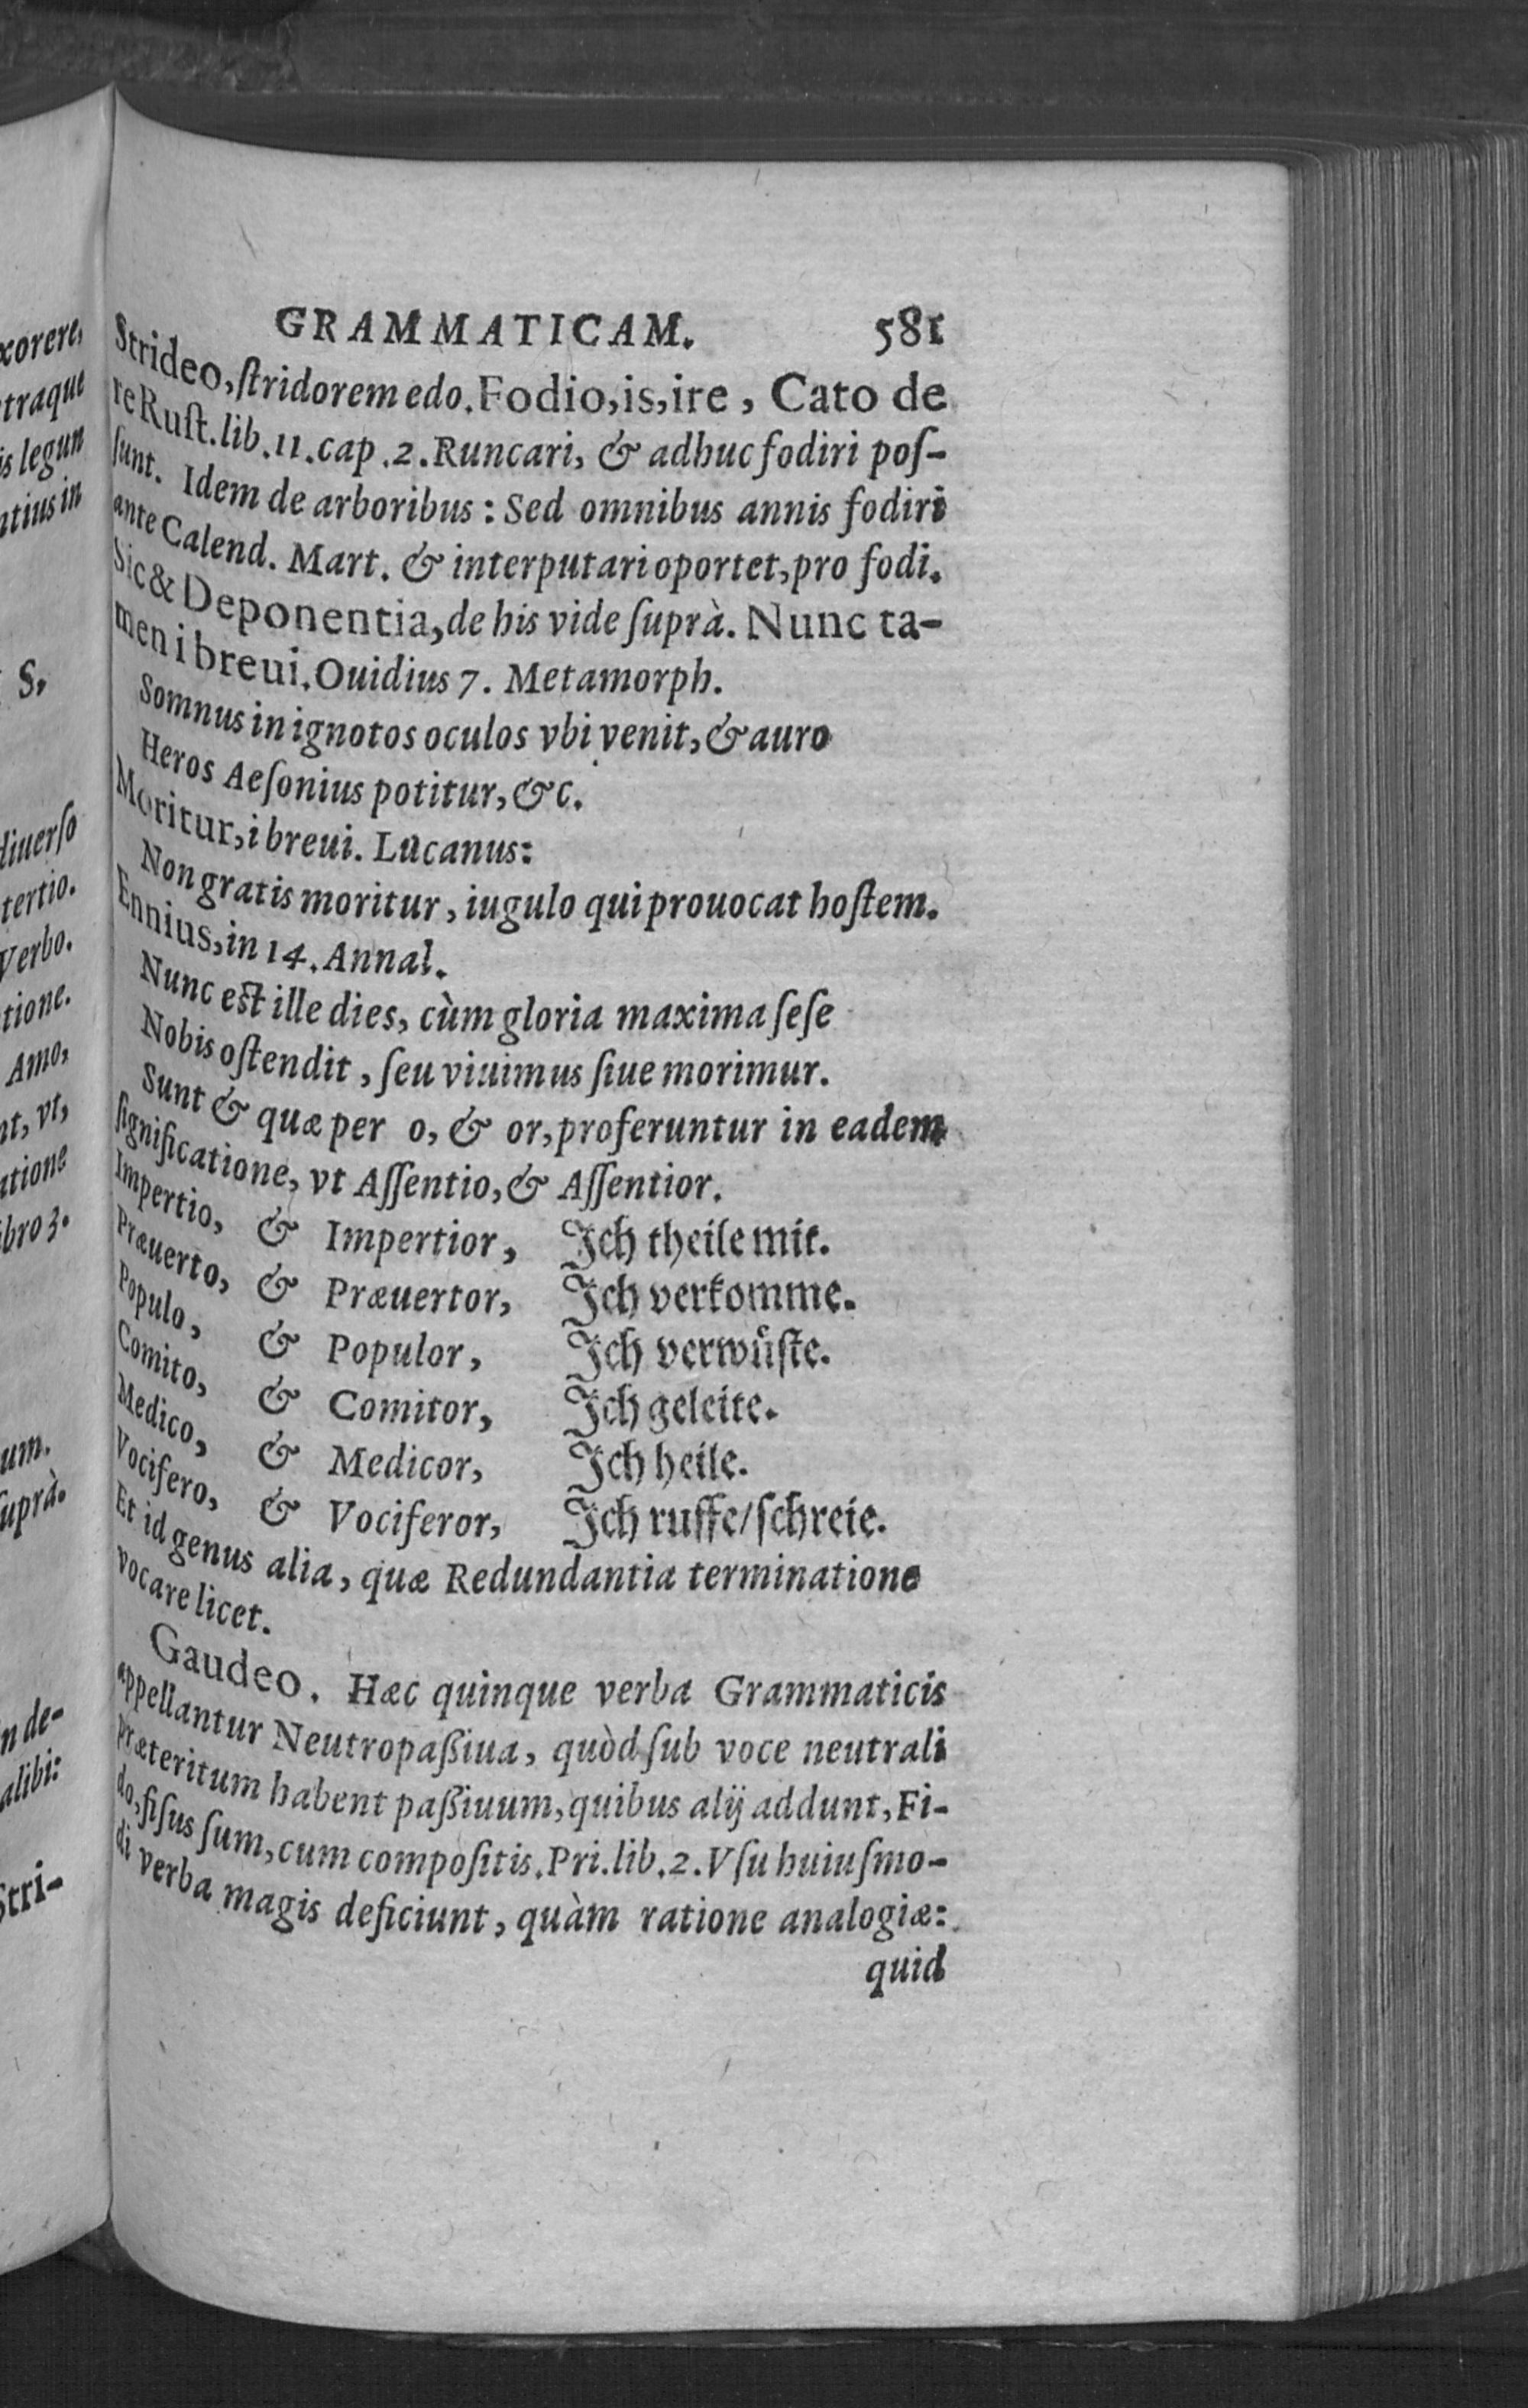 GRAMMATICAM. 581
Strideo, ſtridorem edo. Fodio, is, ire, Cato de
re Ruſt. lib. 11. cap. 2. Runcari, & adhuc fodiri poſ-
ſunt. Idem de arboribus: Sed omnibus annis fodiri
ante Calend. Mart. & interputari oportet, pro fodi.
Sic & Deponentia, de his vide ſuprà. Nunc ta-
men i breui. Ouidius 7. Metamorph.
Somnus in ignotos oculos vbi venit, & auro
Heros Aeſonius potitur, &c.
Moritur, i breui. Lucanus:
Non gratis moritur, iugulo qui prouocat hoſtem.
Ennius, in 14. Annal.
Nunc eſt ille dies, cùm gloria maxima ſeſe
Nobis oſtendit, ſeu viuimus ſiue morimur.
Sunt & quæ per o, & or, proferuntur in eadem
ſignificatione, vt Aſſentio, & Aſſentior.
Impertio, & Impertior, Ich theile mit.
Præuerto, & Præuertor, Ich verkomme.
Populo, & Populor, Ich verwuͤſte.
Comito, & Comitor, Ich geleite.
Medico, & Medicor, Ich heile.
Vocifero, & Vociferor, Ich ruffe/ſchreie.
Et id genus alia, quæ Redundantia terminatione
vocare licet.
Gaudeo. Hæc quinque verba Grammaticis
appellantur Neutropaßiua, quòd ſub voce neutrali
præteritum habent paßiuum, quibus alij addunt, Fi-
do, fiſus ſum, cum compoſitis. Pri. lib. 2. Vſu huiuſmo-
di verba magis deficiunt, quàm ratione analogiæ:
quid